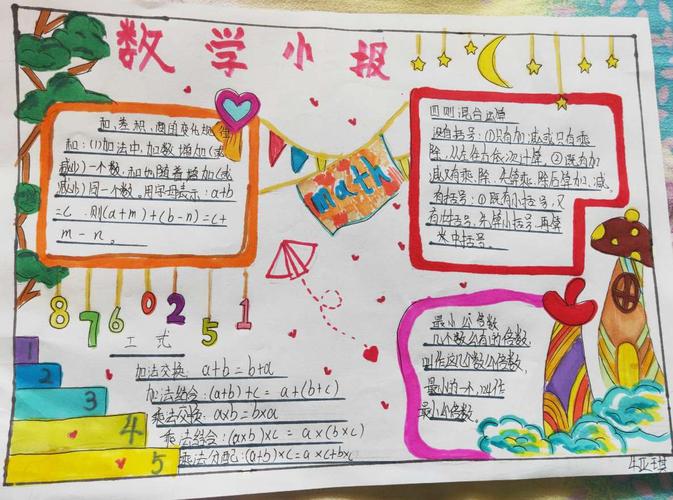 数学小报
和、差、积、商的变化规律
和:(1)加法中,加数增加(或
减少)一个数,和也随着增加(或
减少)同一个数。用字母表示:a+b
=c,则(a+m)+(b-n)=c+
m-n。
math
四则混合运算
没有括号:①只有加、减或只有乘、
除,从左往右依次计算。②既有加、
减又有乘、除,先算乘、除后算加、减。
有括号:①既有小括号,又
有中括号,先算小括号,再算
中括号。
8 7 6 0 2 5 1
1
2
3
4
5
工式
加法交换: a+b=b+a
加法结合:(a+b)+c=a+(b+c)
乘法交换: a×b=b×a
乘法结合:(a×b)×c=a×(b×c)
乘法分配:(a+b)×c=a×c+b×c
最小公倍数
几个数公有的倍数,
叫作这几个数公倍数,
最小的一个,叫作
最小公倍数。